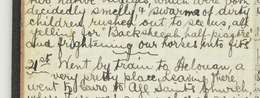 two native villages, which were both
decidedly smelly & swarms of dirty
children rushed out to see us, all
yelling for "Backsheesh half piastre"
and frightening our horses into fits
21st Went by train to Helouan, a
very pretty place, leaving there
went to Cairo to All Saints Church,